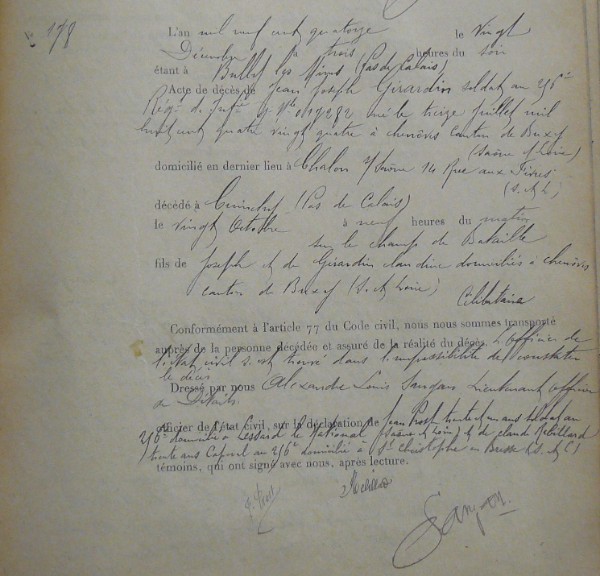 N° 178
L'an mil neuf cent quatorze le Vingt
Décembre à trois heures du soir
étant à Bully les Mines (Pas de Calais)
Acte de décès de Jean Joseph Girardin soldat au 256e
Rég. d'Infie né le treize juillet mil
huit cent quatre vingt quatre à chenôves canton de Buxy
(Saône et Loire)
domicilié en dernier lieu à Chalon s/ Saône 14 Rue aux Fèvres
(S. & L)
décédé à (Pas de Calais)
le vingt Octobre à neuf heures du matin
sur le champs de Bataille
fils de Joseph et de Girardin claudine domiciliés à chenôves
canton de Buxy (S. & Loire)
Célibataire
Conformément à l'article 77 du Code civil, nous nous sommes transporté
auprès de la personne décédée et assuré de la réalité du décès. L'officier de
l'état civil s'est trouvé dans l'impossibilité de constater
le décès
Dressé par nous Alexandre Louis Lieutenant officier
à Détails
officier de l'état civil, sur la déclaration de Jean trente et un ans soldat au
256e domicilié à Lessard le National (Saône & Loire) & de claude Rebillard
trente ans Caporal au 256e domicilié à St Christophe en Bresse (S. & L)
témoins, qui ont signé avec nous, après lecture.